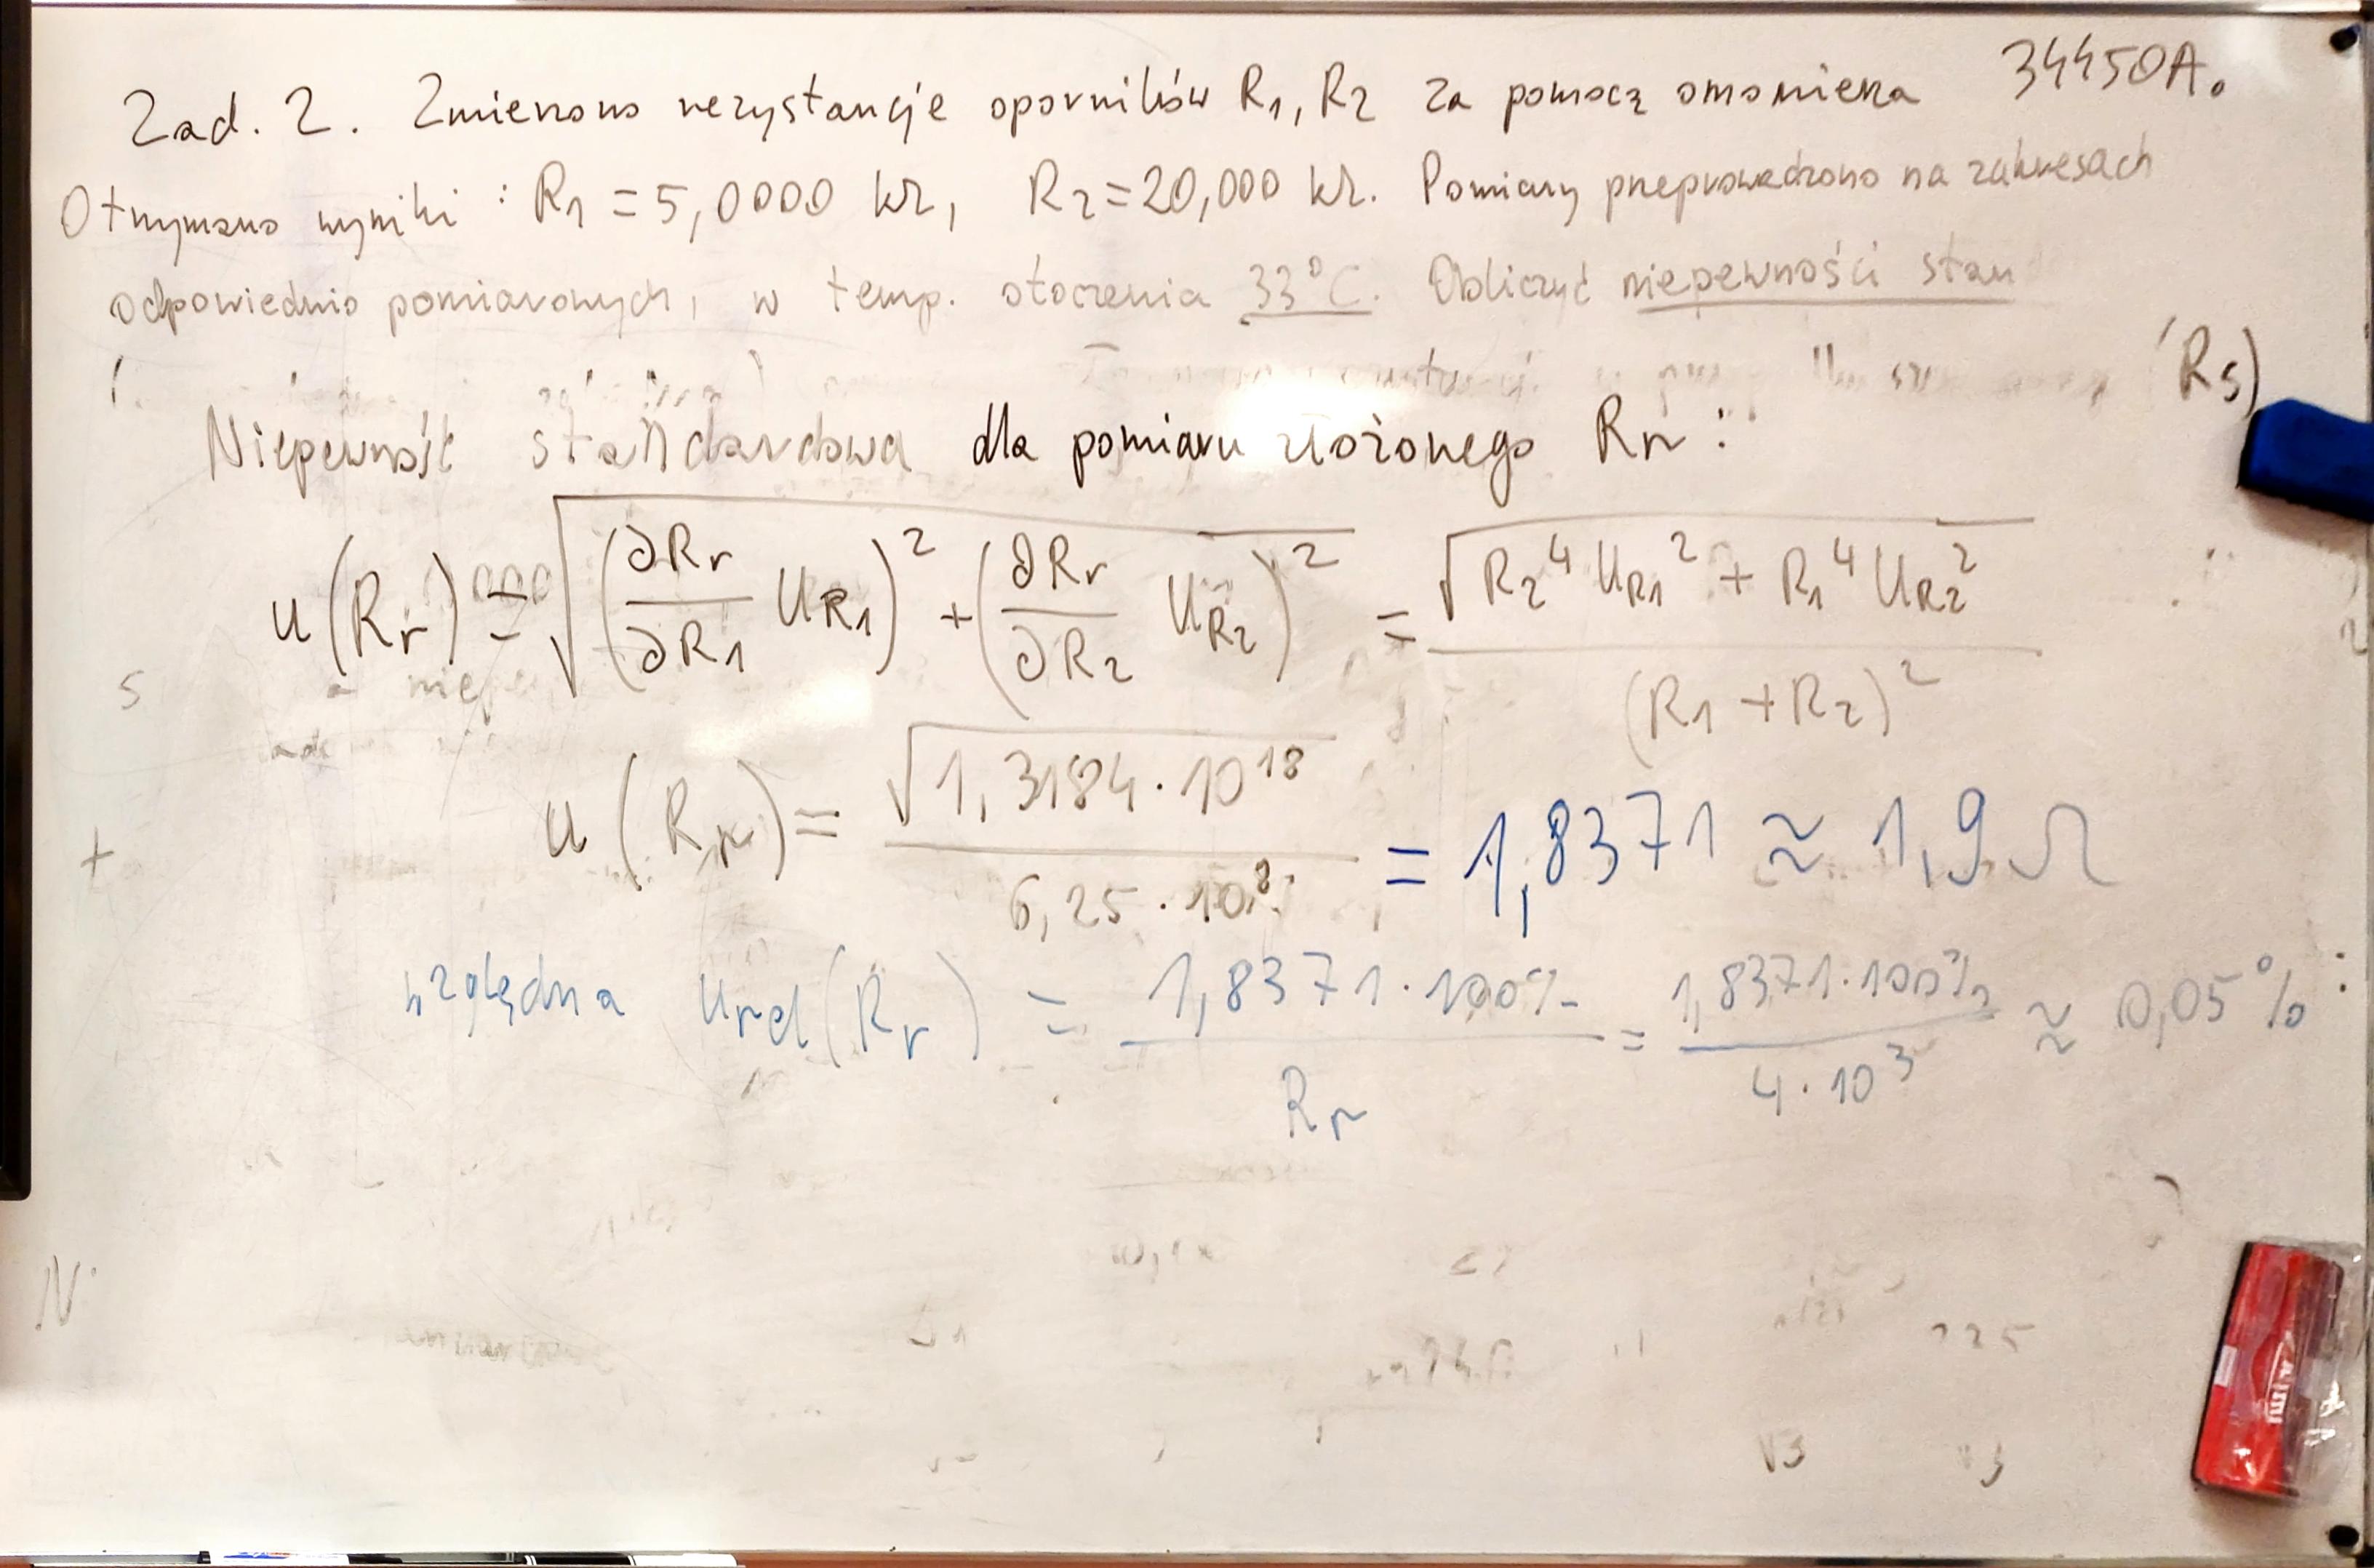 Zad. 2. Zmierzono rezystancje oporników R₁, R₂ za pomocą omomierza 34450A.
Otrzymano wyniki : R₁ = 5,0000 kΩ, R₂ = 20,000 kΩ. Pomiary przeprowadzono na zakresach
odpowiednio pomiarowych, w temp. otoczenia 33°C. Obliczyć niepewności stan
Rs)
Niepewność standardowa dla pomiaru złożonego Rr :
u(Rr) = √((∂Rr/∂R₁ U_R₁)² + (∂Rr/∂R₂ U_R₂)²) = √(R₂⁴ U_R₁² + R₁⁴ U_R₂²) / (R₁ + R₂)²
u(Rr) = √(1,3184 · 10¹⁸) / (6,25 · 10⁸) = 1,8371 ≈ 1,9 Ω
względna u_rel(Rr) = 1,8371 · 100% / Rr = 1,8371 · 100% / 4 · 10³ ≈ 0,05 %